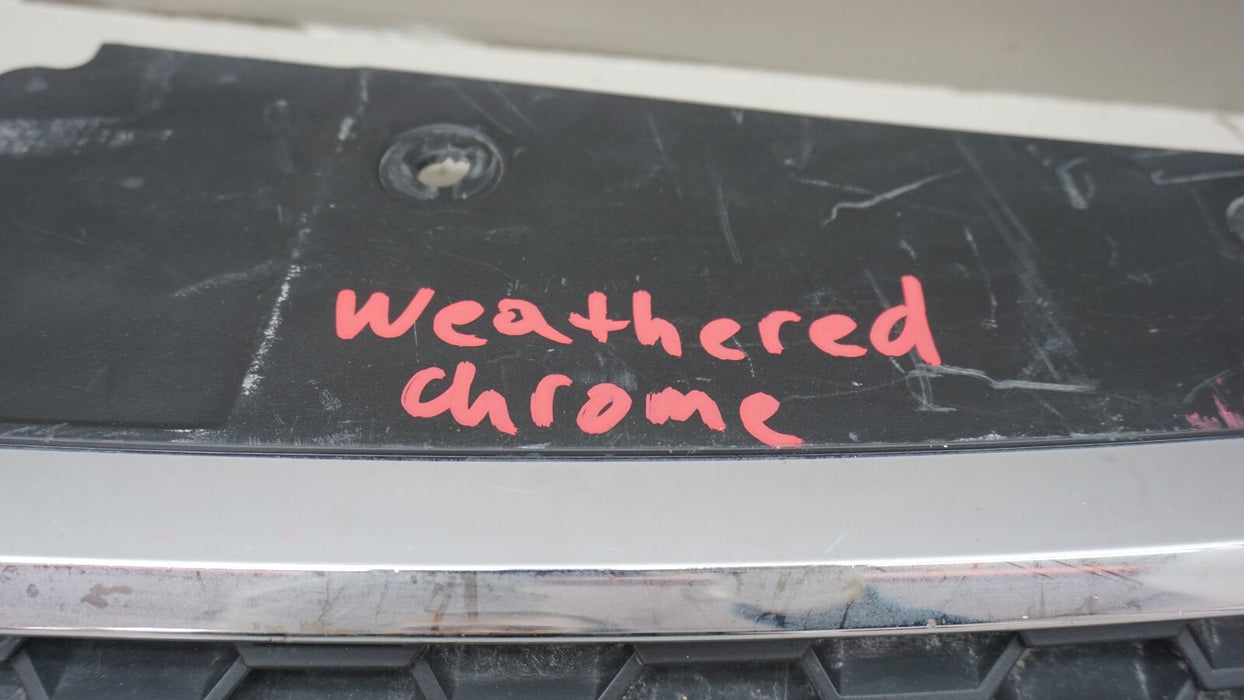 weathered
chrome